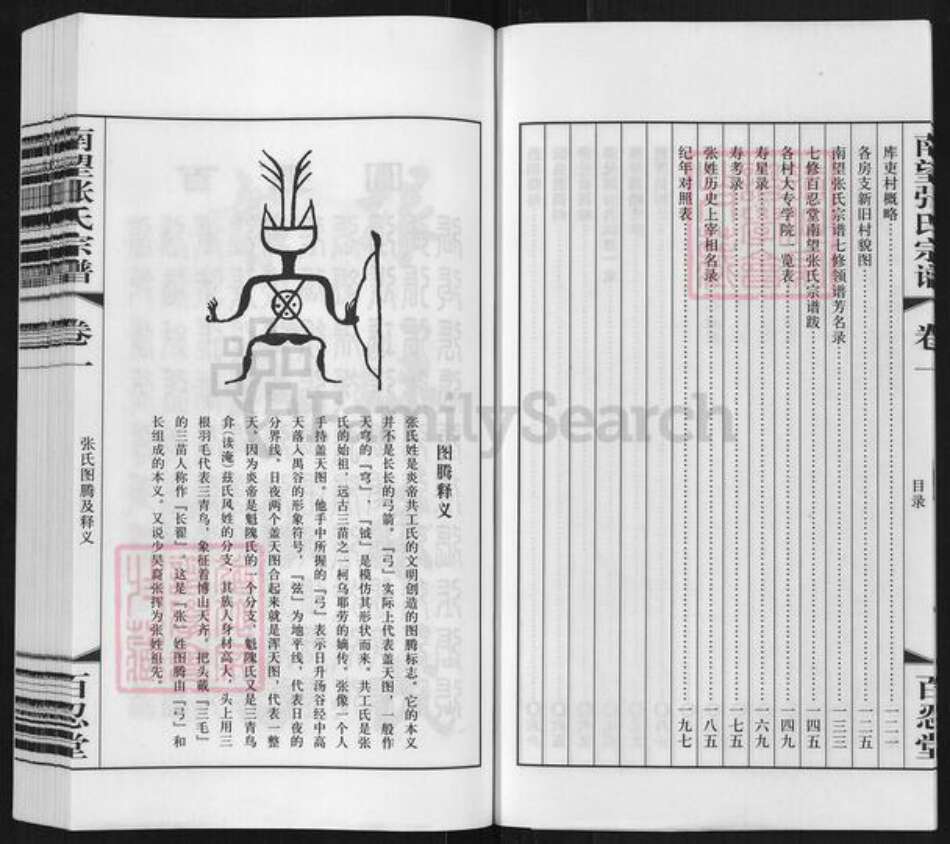 南望张氏宗谱
卷一
目录
百忍堂
库吏村概略 一二一
各房支新旧村貌图 一二五
南望张氏宗谱七修领谱芳名录 一三三
七修百忍堂南望张氏宗谱跋 一四五
各村大专学院一览表 一四九
寿星录 一六九
寿考录 一七五
张姓历史上宰相名录 一八五
纪年对照表 一九七
图腾释义
张氏姓是炎帝共工氏的文明创造的图腾标志。它的本义
并不是长长的弓箭。『弓』实际上代表盖天图，一般作
天穹的『穹』，『钺』是模仿其形状而来。共工氏是张
氏的始祖，远古三苗之一柯乌耶劳的嫡传。张像一个人
手持盖天图。他手中所握的『弓』表示日升汤谷经中高
天落入禺谷的形象符号，『弦』为地平线，代表日夜的
分界线，日夜两个盖天图合起来就是浑天图，代表一整
天。因为炎帝是魁隗氏的一个分支，魁隗氏又是三青鸟
弇（读淹）兹氏风姓的分支，其族人身材高大，头上用三
根羽毛代表三青鸟，象征着博山天齐，把头戴『三毛』
的三苗人称作『长翟』，这是『张』姓图腾由『弓』和
长组成的本义。又说少昊裔张挥为张姓祖先。
南望张氏宗谱
卷一
张氏图腾及释义
百忍堂
FamilySearch